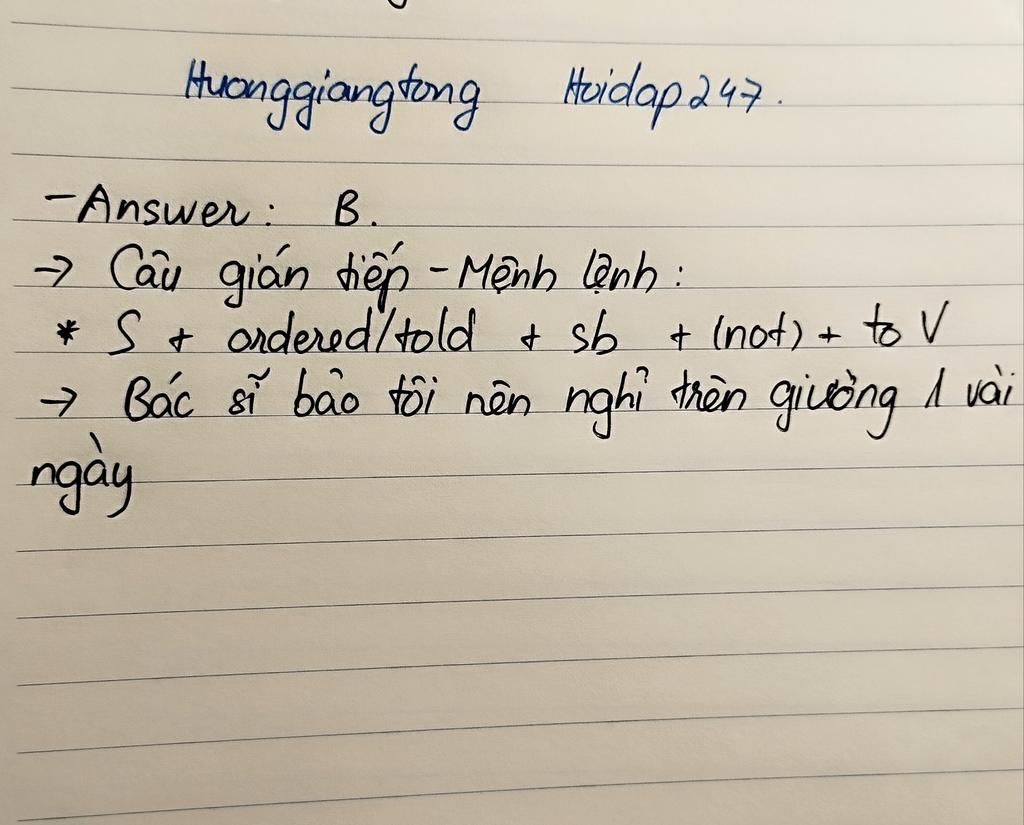 Huonggiangtong Hoidap247.
- Answer: B.
→ Câu gián tiếp - Mệnh lệnh:
* S + ordered/told + sb + (not) + to V
→ Bác sĩ bảo tôi nên nghỉ trên giường 1 vài
ngày